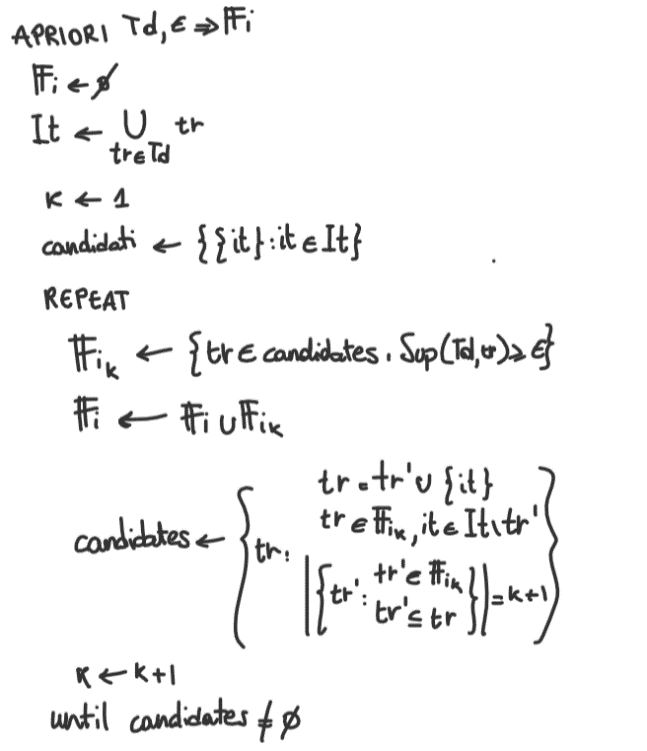 APRIORI Td, ϵ ⇒ 𝔽i
𝔽i ← ∅
It ← ⋃ tr
tr∈Td
K ← 1
candidati ← {{it}:it ∈ It}
REPEAT
𝔽ik ← {tr ∈ candidates. Sup(Td,tr) ≥ ϵ}
𝔽i ← 𝔽i ∪ 𝔽ik
tr = tr' ∪ {it}
tr ∈ 𝔽ik, it ∈ It \ tr'
candidates ← {tr: |{tr': tr' ∈ 𝔽ik
tr' ⊆ tr}| = k+1}
K ← k+1
until candidates ≠ ∅